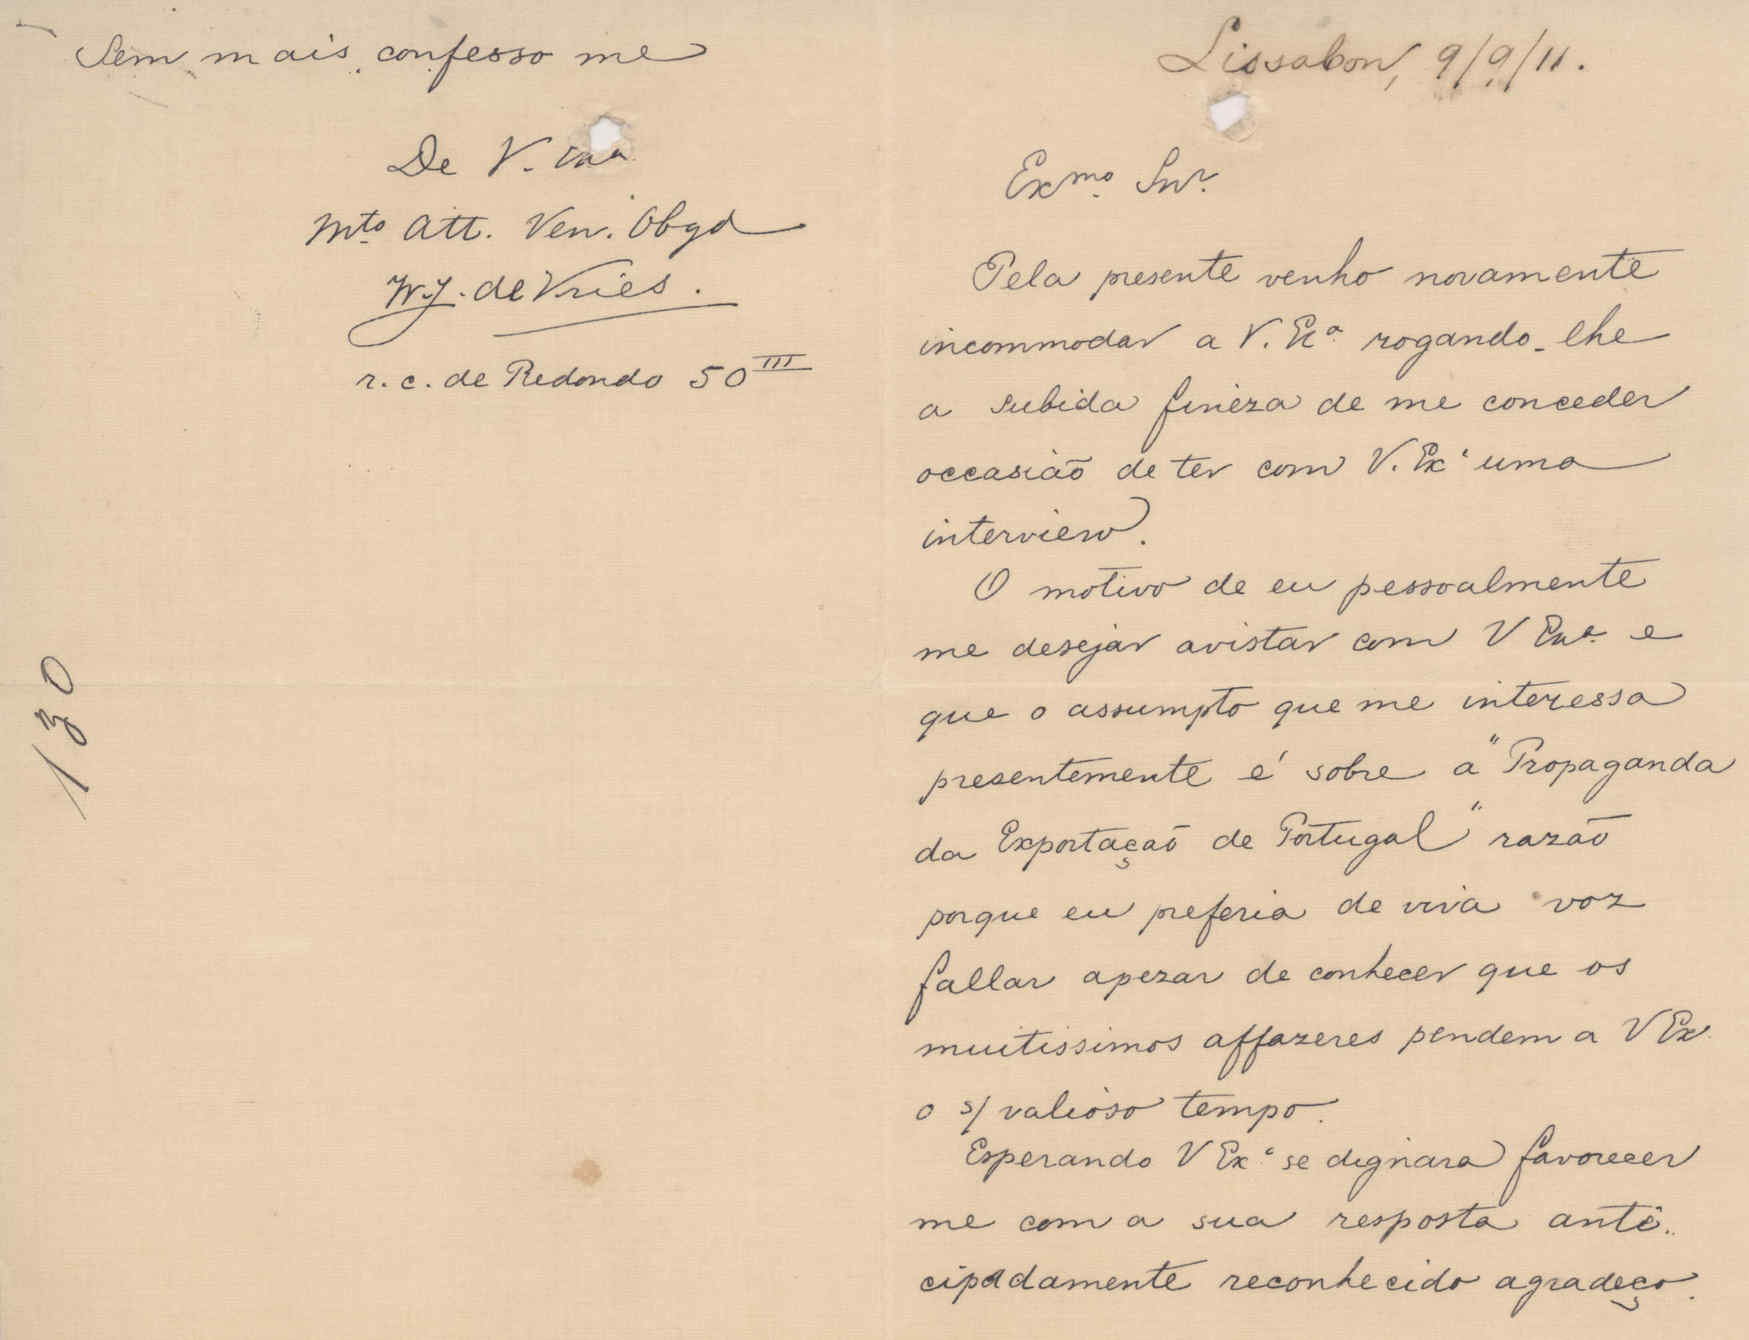 Lissabon, 9/9/11.
Exmo. Snr.
Pela presente venho novamente
incommodar a V. Exa. rogando-lhe
a subida finéza de me conceder
occasião de ter com V. Exa uma
interview.
O motivo de eu pessoalmente
me desejar avistar com V Exa. e
que o assumpto que me interessa
presentemente é sobre a "Propaganda
da Exportação de Portugal" razão
porque eu preferia de viva voz
fallar apezar de conhecer que os
muitissimos affazeres pendem a V Ex.
o s/ valioso tempo.
Esperando V Exa. se dignara favorecer
me com a sua resposta anti-
cipadamente reconhecido agradeço.
Sem mais confesso me
De V. Exa
Mto. Att. Ven. Obgd
W.J. de Vries.
r. c. de Redondo 50 III
130